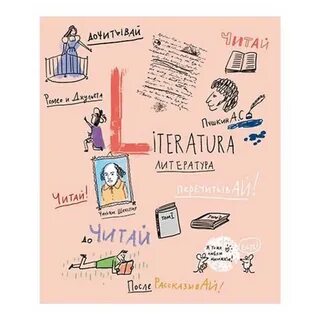 дочитывАЙ
Читай
Ромео и Джульета
Пушкин А.С.
LITERATURA
ЛИТЕРАТУРА
перечитывАЙ!
Читай!
Уильям Шекспир
том I.
том II.
до ЧИТАЙ
Я тоже
люблю
книжки!
После РассказывАЙ!